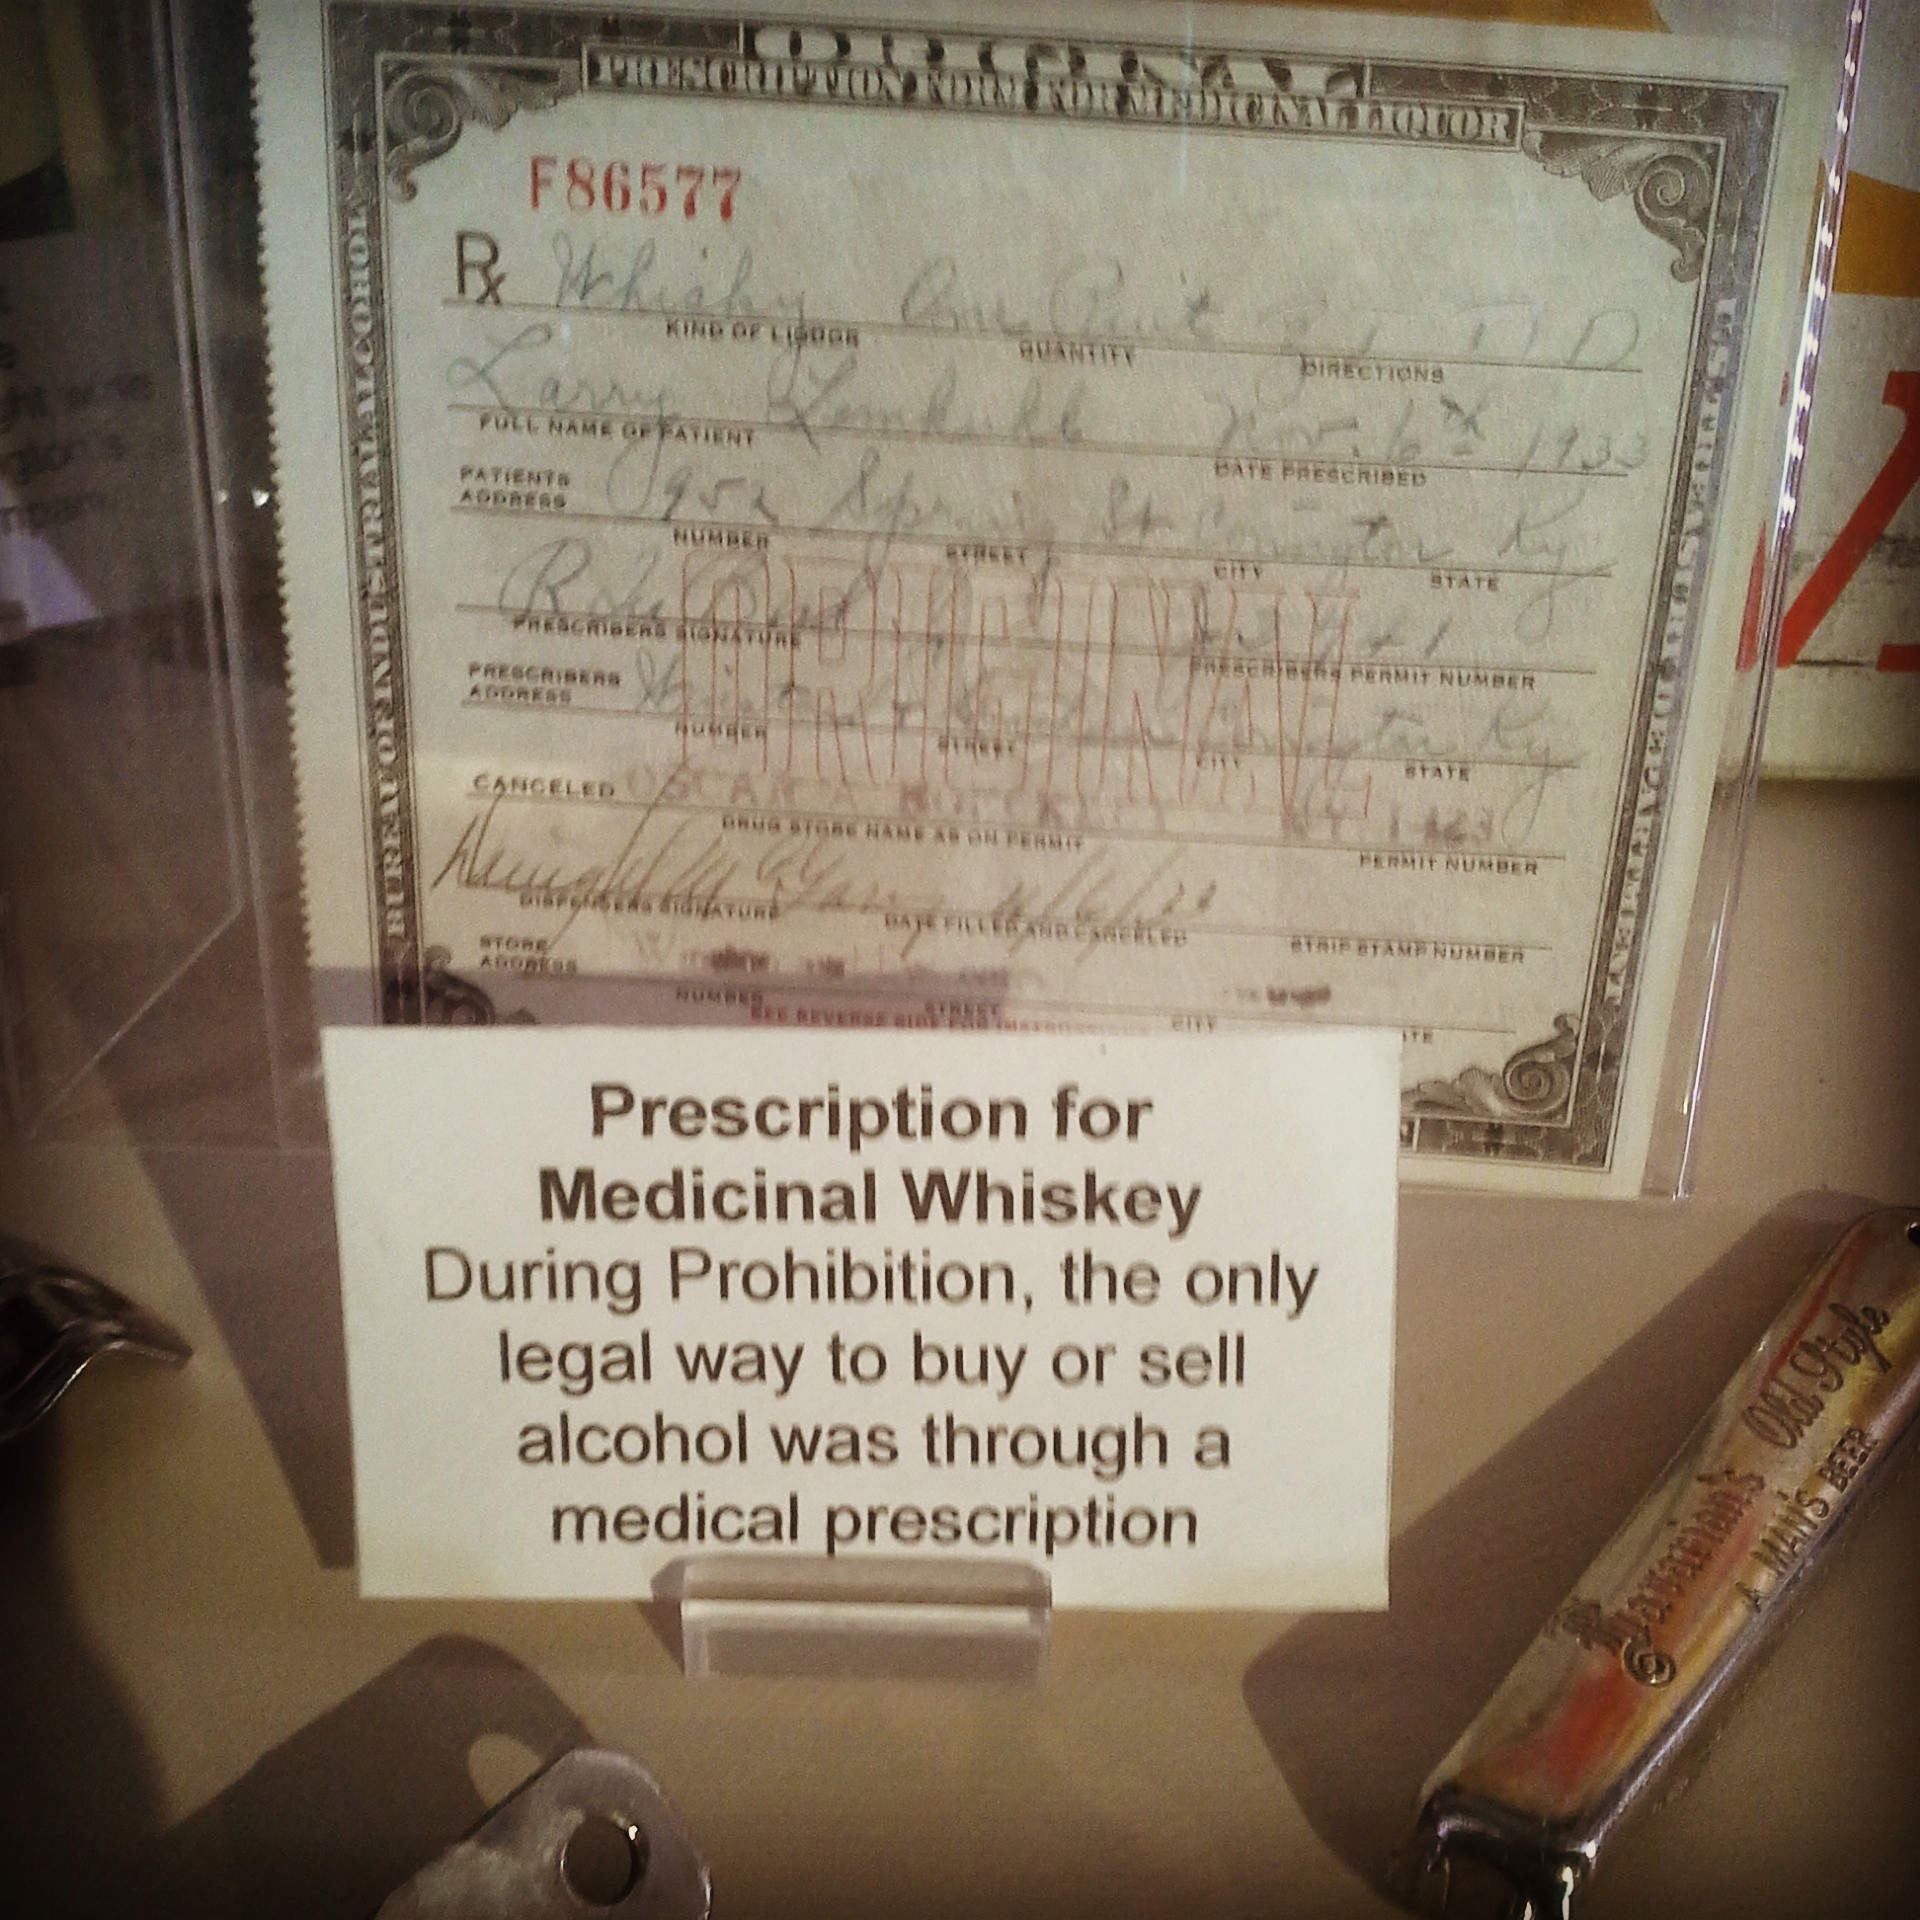 ORIGINAL
PRESCRIPTION FORM FOR MEDICINAL LIQUOR
BUREAU OF INDUSTRIAL ALCOHOL
F86577
Rx Whisky One Pint
KIND OF LIQUOR QUANTITY DIRECTIONS
Larry Nov. 6th 1933
FULL NAME OF PATIENT DATE PRESCRIBED
PATIENTS
ADDRESS 952 Spring St Covington Ky
NUMBER STREET CITY STATE
ORIGINAL
PRESCRIBERS SIGNATURE PRESCRIBERS PERMIT NUMBER
PRESCRIBERS
ADDRESS Covington Ky
NUMBER STREET CITY STATE
CANCELED OSCAR A
DRUG STORE NAME AS ON PERMIT PERMIT NUMBER
DISPENSERS SIGNATURE DATE FILLED AND CANCELED STRIP STAMP NUMBER
STORE
ADDRESS
NUMBER STREET CITY
SEE REVERSE SIDE FOR INSTRUCTIONS
Prescription for
Medicinal Whiskey
During Prohibition, the only
legal way to buy or sell
alcohol was through a
medical prescription
Old Style
A MAN'S BEER